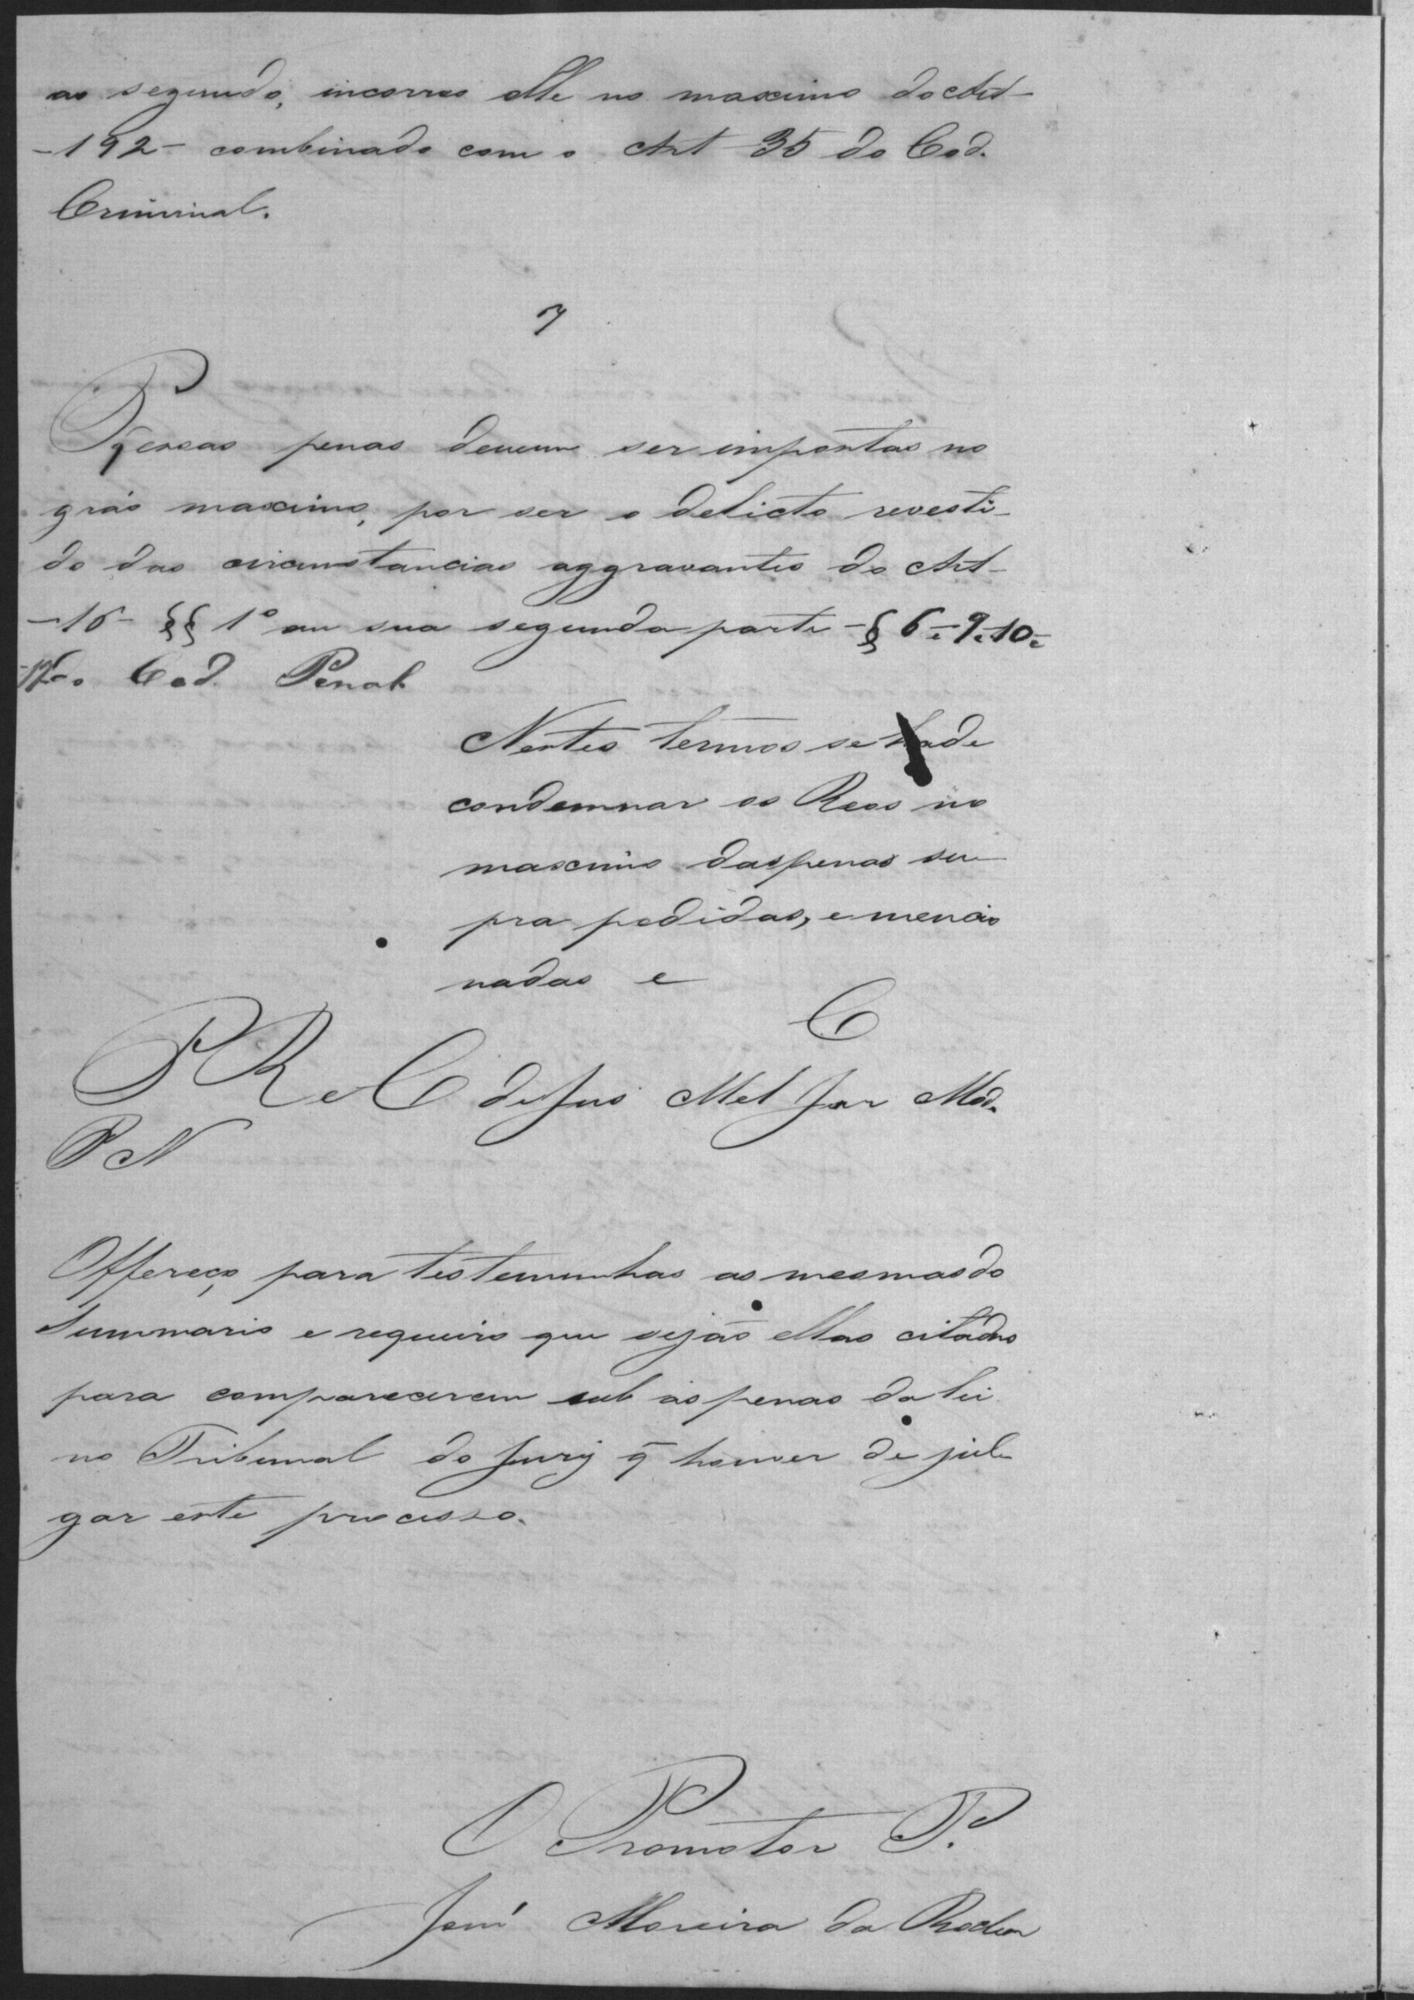 ao segundo, incorreo elle no maximo do Art-
-192- combinado com o Art 35 do Cod.
Criminal.
7
P. q essas penas devem ser impostas no
gráo maximo, por ser o delicto revesti-
do das circunstancias aggravantes do Art-
-16- §§ 1º em sua segunda parte - § 6-9-10-
-17- Cod. Penal
Nestes termos se hade
condemnar os Reos no
maximo das penas su-
pra pedidas, e mencio
nadas e
C
P R e C de Jus Mel For Mod.
P N
Offereço para testemunhas as mesmas do
Summario e requeiro que sejão ellas citadas
para comparecerem sub as penas da lei
no Tribunal do Jury q̃ houver de jul-
gar este processo.
O Promotor P.
José Moreira da Rocha